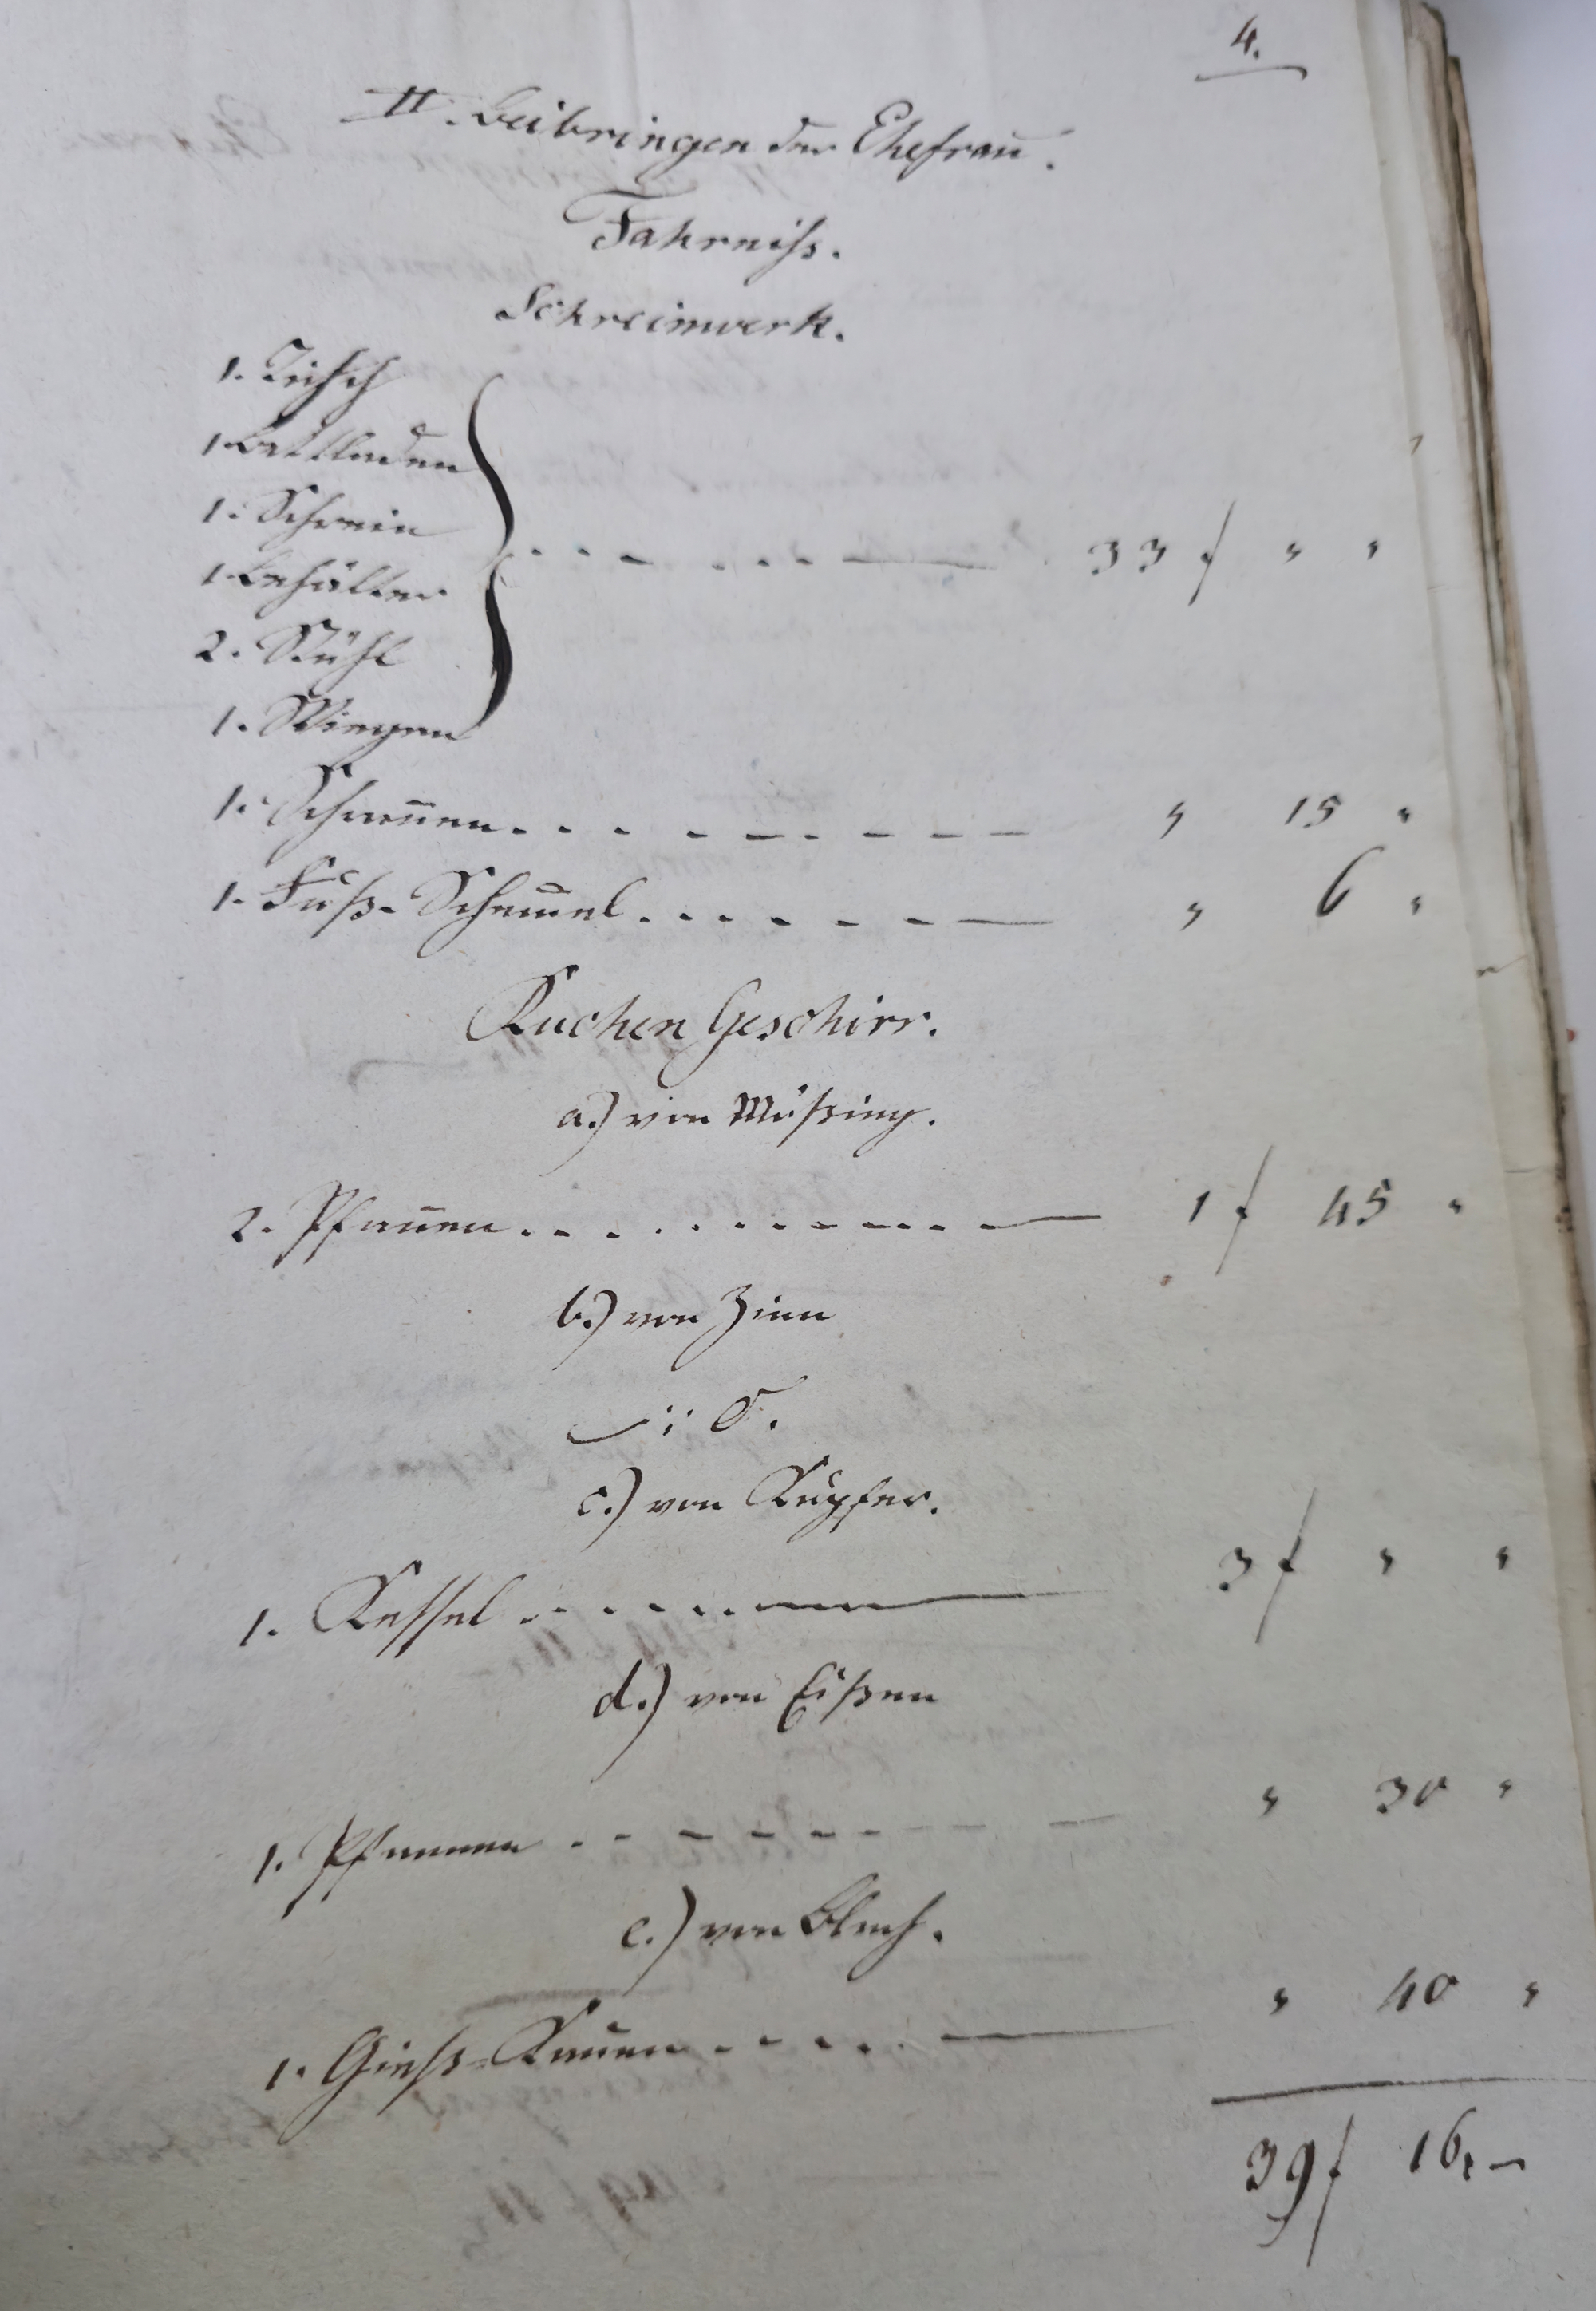 4.
II. Beibringen der Ehefrau.
Fahrniß.
Schreinwerk.
1. Tisch
1. Bettladen
1. Schrein
1. Behälter
2. Stühl
1. Wiegen
33 f " "
1. Schrannen " 15 "
1. Fuß-Schem̅el " 6 "
Kuchen Geschirr.
a.) von Mößing.
2. Pfan̅en 1 f 45 "
b.) von Zinn
–:; O.
c.) von Kupfer.
1. Kessel 3 f " "
d.) von Eißen
1. Pfannen " 30 "
e.) von Blech.
1. Gieß-Kan̅en " 40 "
39 f 16 –